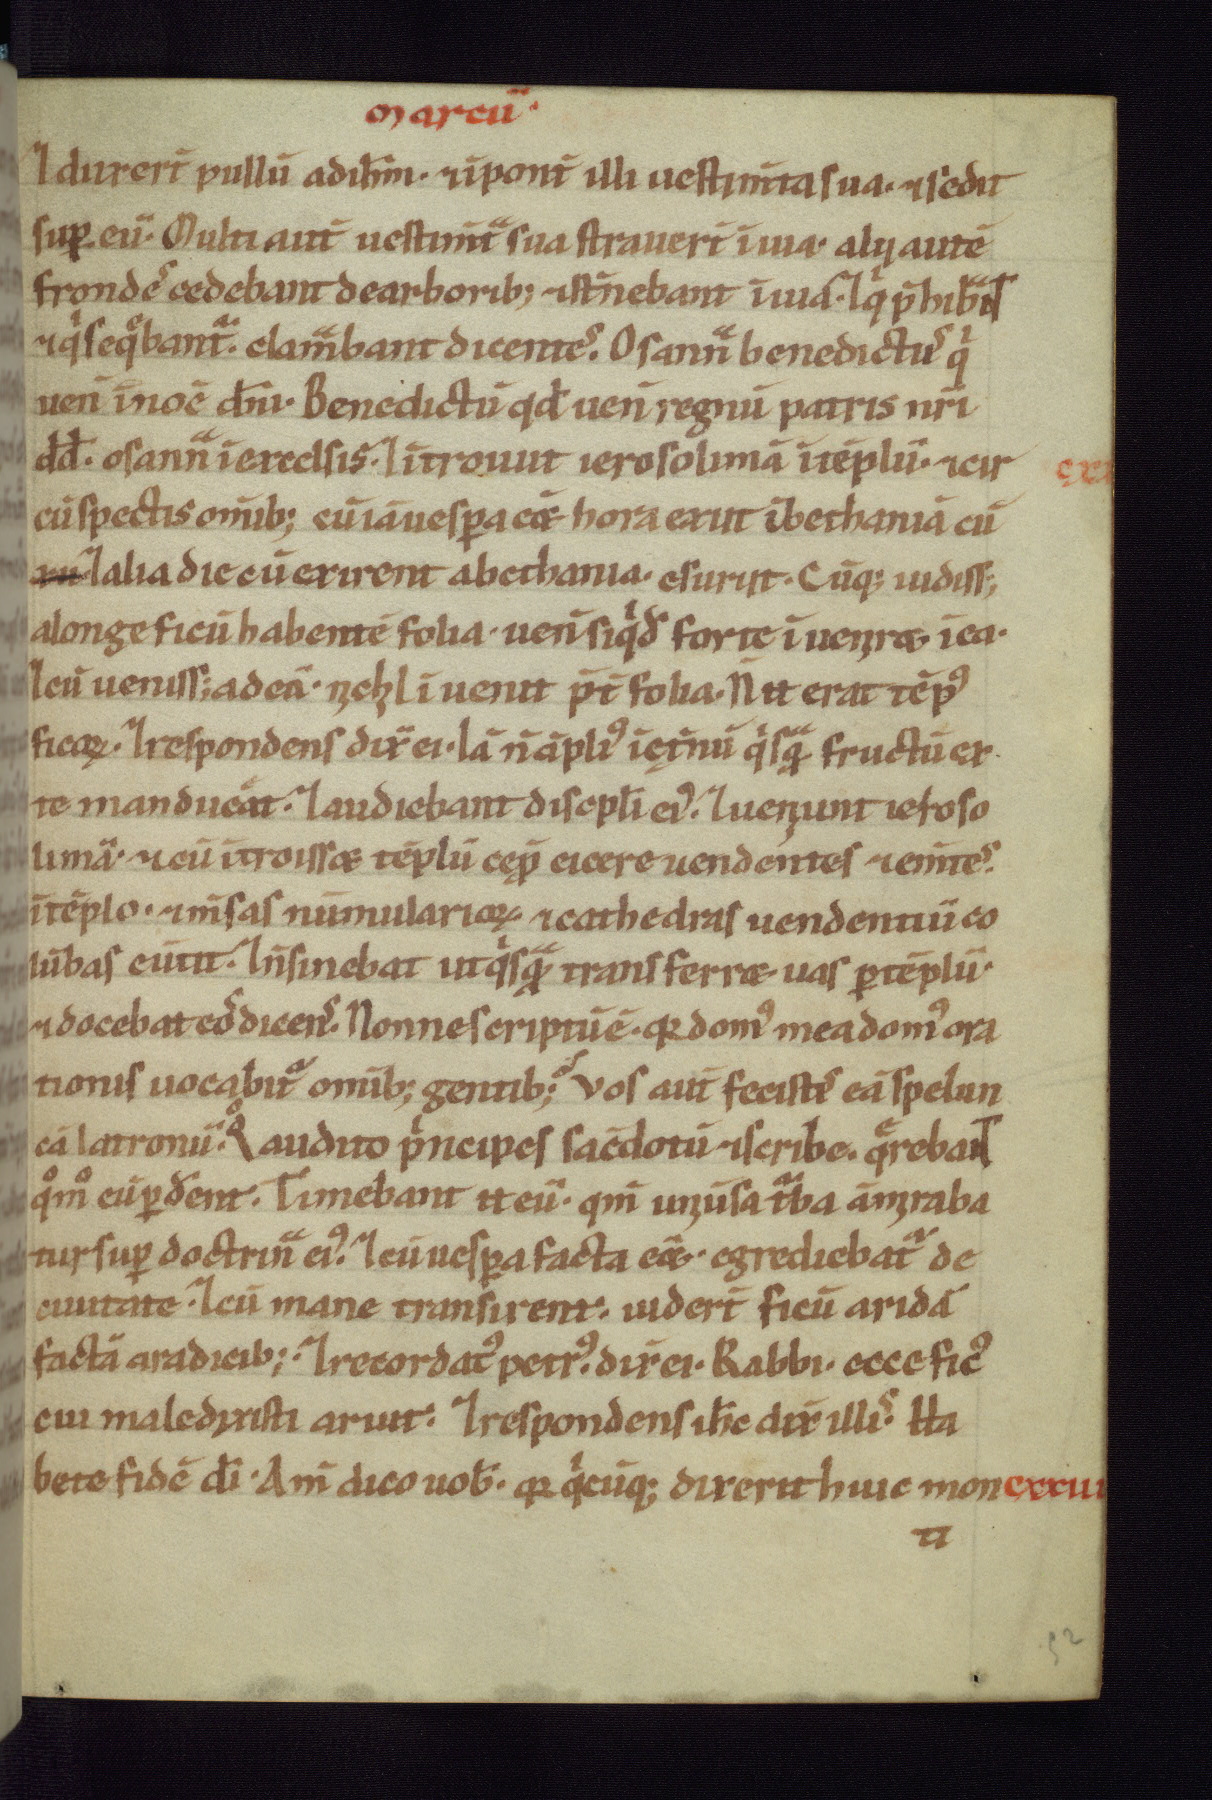 marcū·
⁊ duxerт̄ pullū ad ih̄m· ⁊ īpont̄ illi uestim̄ta sua· ⁊ sedit
suꝑ eū· Multi aut̄ uestim̄ᵗᵃ sua strauert̄ ī uia· alij autē
frondes cedebant de arborib; ⁊ st̄nebant ī uia· ⁊ qⁱ p̄hibāt
⁊ qⁱ seqᵉbant᷑. clamᵃbant dicentes. Osannᵃ benedictus qⁱ
ueñ ī noē dn̄i· Benedictū qd̄ ueñ regnū patris nr̄i
dd̄· osannᵃ ī excelsis· ⁊ ītroiuit ierosolimā ī tēplū· ⁊ cir
cūspectis om̄ib; cū iā uesꝑa eēt hora exiit ī bethaniā cū
xii ⁊ alia die cū exirent a bethania· esuriit· Cūq; uidiss;
a longe ficū habentē folia· ueñ si qⁱd forte īueniret ī ea·
⁊ cū ueniss; ad eā· nichil īuenit p̄t̄ folia· N̄ erat tēpꝰ
ficoꝝ· ⁊ respondens dix̄ ei· Iā n̄ āpliꝰ ī et̄nū qⁱsqᵃm fructū ex
te manducet· ⁊ audiebant discipl̄i eiꝰ. ⁊ ueniunt ieroso
limā· ⁊ cū ītroisset tēplū cep̄ eicere uendentes ⁊ em̄tes
ī tēplo· ⁊ m̄sas nūmularioꝝ ⁊ cathedras uendentiū co
lūbas eūtit· ⁊ n̄ sinebat ut qⁱsqᵃm transferret uas ꝑ tēplū·
⁊ docebat eos dicens. Nonne scriptū ē· qꝛ domꝰ mea domꝰ ora
tionis uocabit᷑ om̄ib; gentib; Vos aut̄ fecistis eā spelun
cā latronū· Qᵒ audito pⁱncipes sacēdotū ⁊ scribe· qᵉrebant
qᵒmᵒ eū ꝑdēnt. Timebant eū· qm̄ uniūsa tᵃba āmiraba
tur suꝑ doctrinᵃ eiꝰ. ⁊ cū uesꝑa facta eēt· egrediebat᷑ de
ciuitate· ⁊ cū mane transirent. uidert̄ ficū aridā
factā a radicib;· ⁊ recordatꝰ petrꝰ. dix̄ ei· Rabbi· ecce ficꝰ
cui maledixisti aruit· ⁊ respondens ih̄c dix̄ illis Ha
bete fidē dī· Am̄ dico uob̄· qꝛ qⁱcūq; dixerit huic mon cxxuii
ti
52